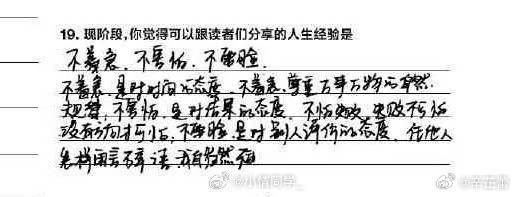 19. 现阶段,你觉得可以跟读者们分享的人生经验是
不着急、不害怕、不要脸.
不着急,是对时间的态度,不着急,尊重万事万物的自然
规律,不害怕,是对结果的态度,不怕失败,失败不可怕
没有什么可怕,不要脸,是对别人评价的态度,任他人
怎样闲言碎语,我自
@小情同学_